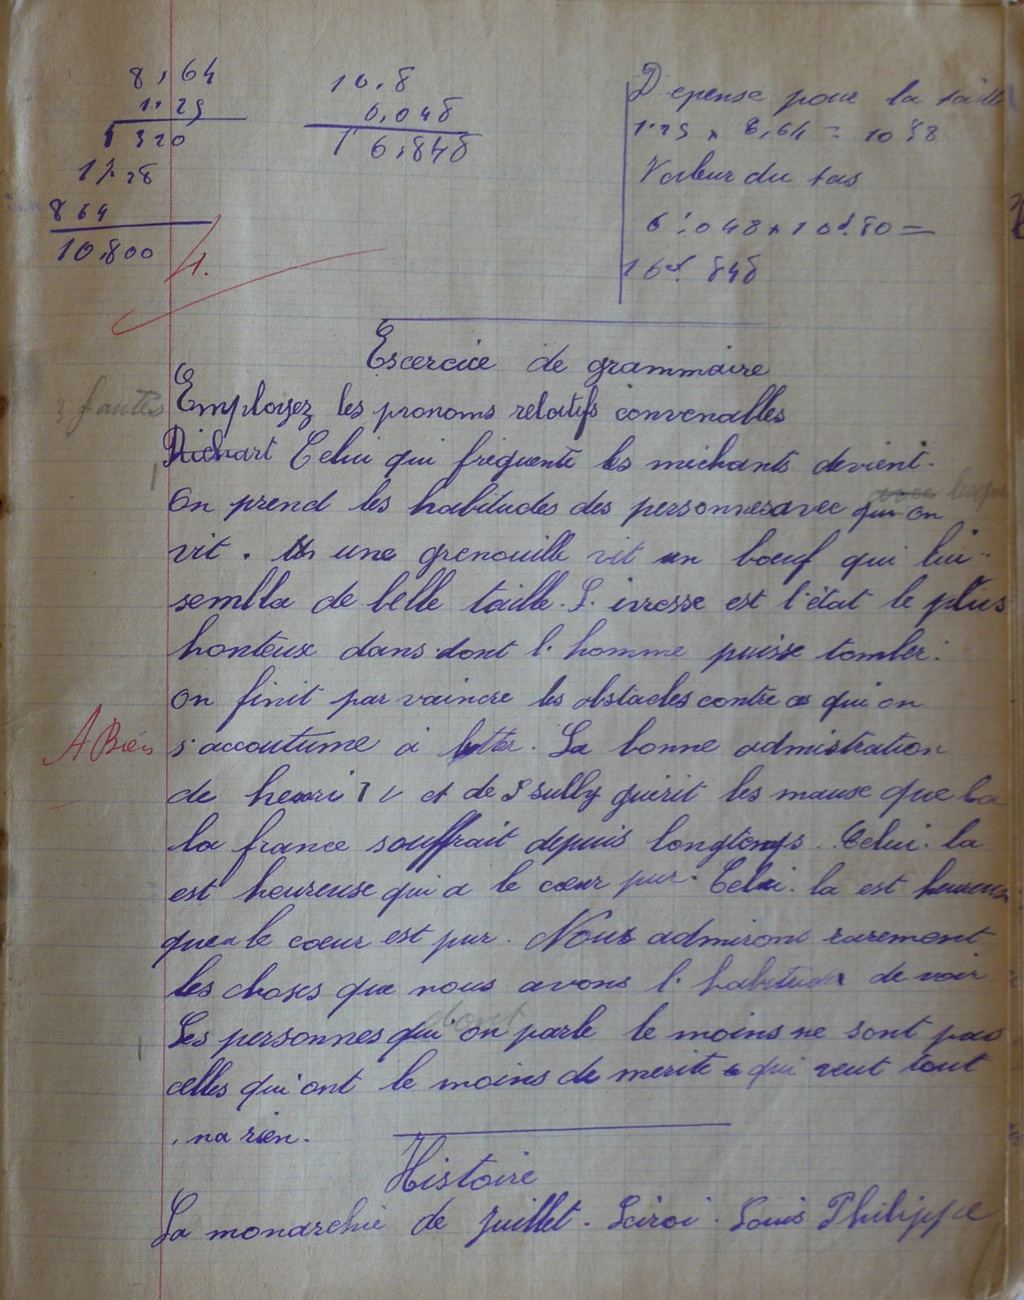 8,64
1.25
4320
1728
864
10,800
10,8
6,048
16,848
Depense pour la taille
1.25 x 8,64 = 10 f 8
Valeur du tas
6f,048 x 10f.80 =
16f 848
4.
Escercice de grammaire
3 fautes
Emploiyez les pronoms relatifs convenables
Richart Celui qui fréquente les méchants devient.
On prend les habitudes des personnes avec qui on
vit. une grenouille vit un bœuf qui lui
sembla de belle taille. L. ivresse est l'état le plus
honteux dans dont l. homme puisse tomber.
On finit par vaincre les obstacles contre qui on
A Bien
s'accoutume a lutter. La bonne admistration
de henri IV et de Sully guérit les mause que la
la france souffrait depuis longtemps. Celui. la
est heureuse qui a le cœur pur. Celui. la est heureus
que le cœur est pur. Nous admirons rarement
les choses que nous avons l. habitude de voir
dont
Les personnes qui on parle le moins ne sont pas
celles qui ont le moins de merite qui veut tout
, na rien.
Histoire
La monarchie de juillet. Leiroi. Louis Philippe